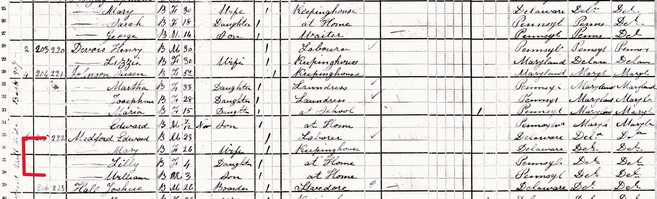 Mary B F 30 Wife 1 Keepinghouse Delaware Del. Del
Sarah B F 18 Daughter 1 at Home Pennsyl Penns Del
George B M 14 Son 1 Waiter Pennsyl Penns Del
2 203 220 Henry B M 30 1 Labourer Pennsyl Pennsyl Pennsy
Lizzie B F 30 Wife 1 Keepinghouse Maryland Delaw Delaw
4 221 Johnson B F 52 Keepinghouse Maryland Maryl Maryl
Martha B F 33 Daughter 1 Laundress Pennsy Maryland Maryland
Josephine B F 28 Daughter 1 Laundress Pennsy Maryland Maryland
Maria B F 15 Daughter 1 at School 1 Pennsyl Maryland Maryl
Edward B M Nov Son 1 at Home Maryl Maryl
222 Medford Edward B M 28 1 Laborer Delaware Del
Mary B F 26 Wife 1 Keepinghouse Delaware Del. Del.
Lilly B F 4 Daughter 1 at Home Pennsy. Del. Del
William B M 3 Son 1 at Home Pennsy. Del. Del.
223 Hall B M 26 Boarder 1 Stevedore Delaware Del. Del.